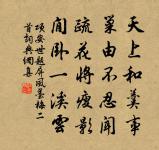 天上和羹事
巢由不忍聞
疏花將瘦影
閒卧一溪雲
項安世題屏風墨梅二
首詞典網集